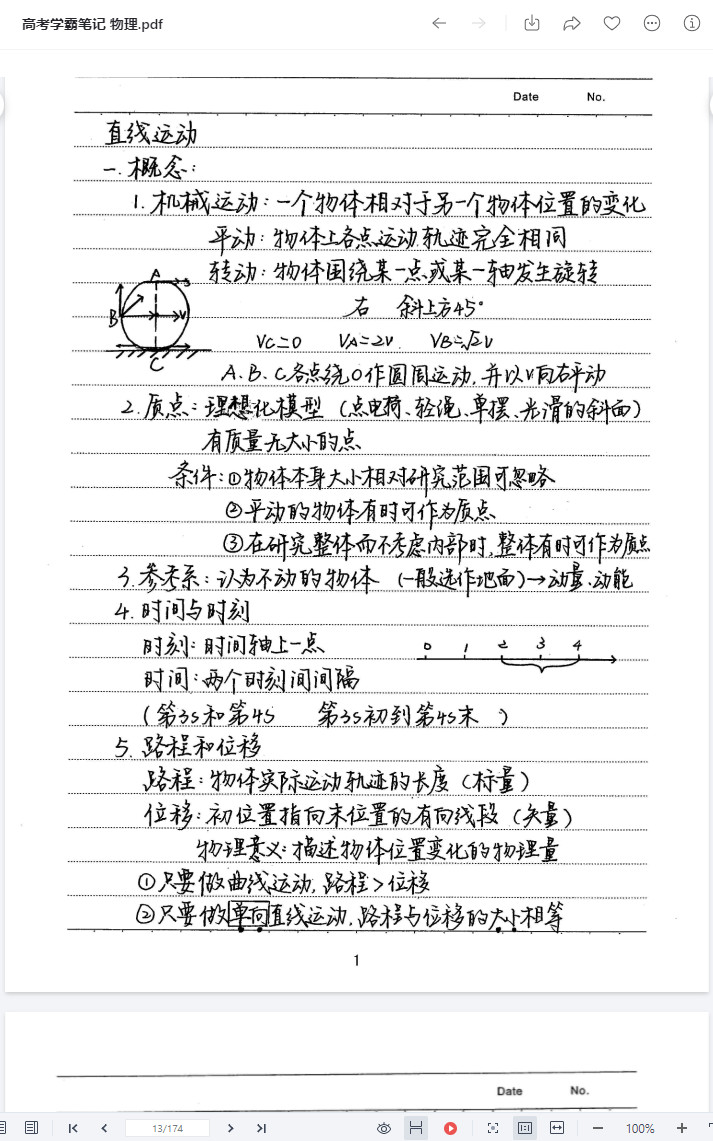 高考学霸笔记 物理.pdf
Date No.
直线运动
一.概念:
1. 机械运动:一个物体相对于另一个物体位置的变化
平动:物体上各点运动轨迹完全相同
转动:物体围绕某一点或某一轴发生旋转
右 斜上方45°
A
B
V
C
Vc=0 VA=2V VB=√2V
A、B、C各点绕O作圆周运动,并以V向右平动
2. 质点:理想化模型(点电荷、轻绳、单摆、光滑的斜面)
有质量无大小的点
条件:①物体本身大小相对研究范围可忽略
②平动的物体有时可作为质点
③在研究整体而不考虑内部时,整体有时可作为质点
3. 参考系:认为不动的物体 (一般选作地面)→动量、动能
4. 时间与时刻
时刻:时间轴上一点
0 1 2 3 4
时间:两个时刻间间隔
(第3s和第4s 第3s初到第4s末 )
5. 路程和位移
路程:物体实际运动轨迹的长度(标量)
位移:初位置指向末位置的有向线段(矢量)
物理意义:描述物体位置变化的物理量
①只要做曲线运动,路程>位移
②只要做单向直线运动,路程与位移的大小相等
1
Date No.
13/174
1:1
100%